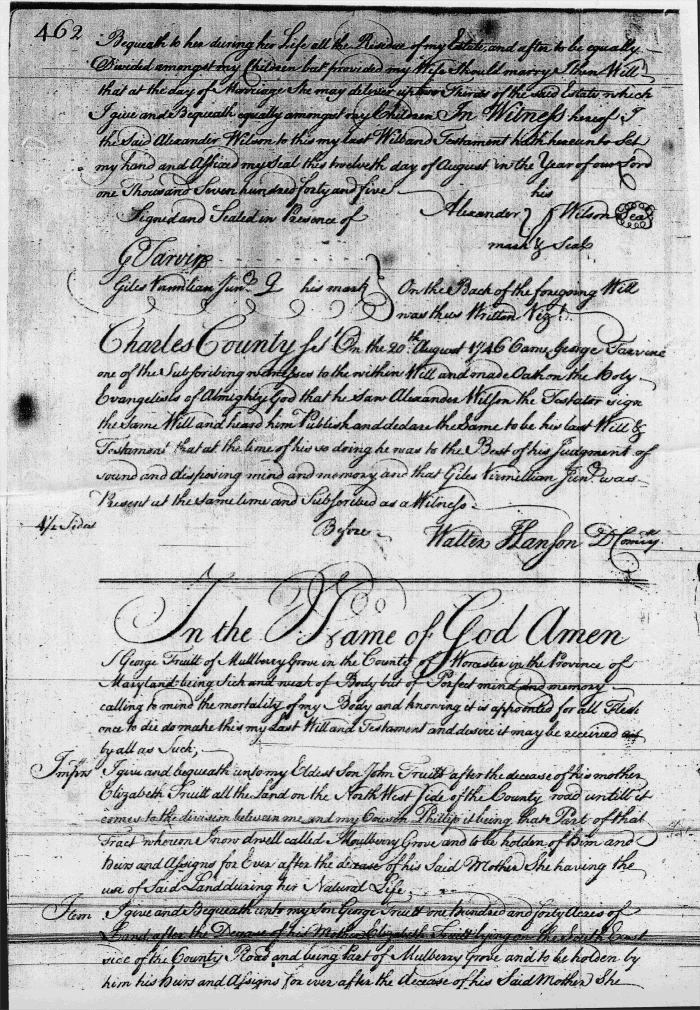 462
Bequeath to her during her Life all the Residue of my Estate and after to be equally
Divided amongst my Children but provided my Wife Should marry then Will
that at the day of Marriage She may deliver up two Thirds of the said Estate which
I give and Bequeath equally amongst my Children In Witness hereof I
the Said Alexander Wilson to this my last Will and Testament hath hereunto Set
my hand and Affixed my Seal this twelfth day of August in the Year of our Lord
one Thousand Seven hundred forty and five
his
Signed and Sealed in Presence of Alexander Wilson Seal
mark & Seal
G Tarvin
Giles Vermilian Junr. his mark On the Back of the foregoing Will
was thus Written Vizt.
Charles County Sst. On the 20th August 1746 Came George Tarvine
one of the Subscribing witnesses to the within Will and made Oath on the Holy
Evangelists of Almighty God that he Saw Alexander Wilson the Testator sign
the Same Will and heard him Publish and declare the Same to be his last Will &
Testament that at the time of his so doing he was to the Best of his Judgment of
sound and disposing mind and memory and that Giles Virmilian Junr. was
Present at the same time and Subscribed as a Witness
4½ Sides Before Walter Hanson D Comry.
In the Name of God Amen
I George Truitt of Mullberry Grove in the County of Worcester in the Province of
Maryland being Sick and weak of Body but of Perfect mind and memory
calling to mind the mortality of my Body and knowing it is appointed for all Flesh
once to die do make this my Last Will and Testament and desire it may be received
by all as Such,
Imprs I give and bequeath unto my Eldest Son John Truitt after the decease of his mother
Elizabeth Truitt all the Land on the North West Side of the County road untill it
comes to the division between me and my Couson Phillip it being that Part of that
Tract whereon I now dwell called Moulberry Grove and to be holden of him and
Heirs and Assigns for Ever after the decease of his Said Mother She having the
use of Said Land during her Natural Life
Item I give and Bequeath unto my Son George Truitt one hundred and forty Acres of
Land after the Decease of his Mother Elizabeth Truitt lying on the South East
side of the County Road and being Part of Mulberry Grove and to be holden by
him his Heirs and Assigns for ever after the decease of his Said Mother She